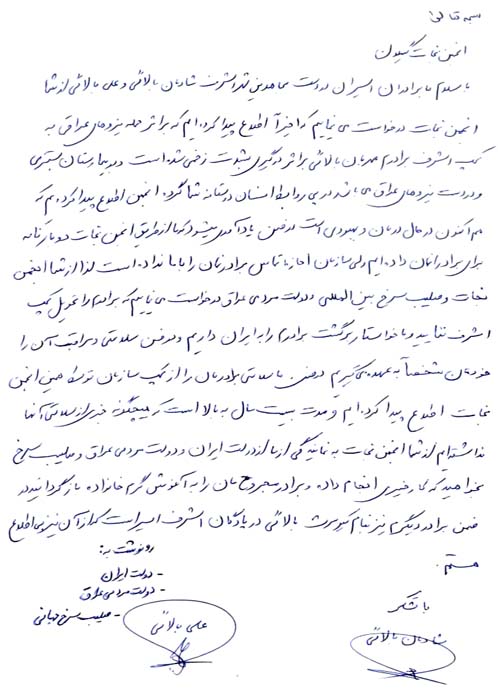 بسمه تعالی
انجمن نجات گیلان
با سلام ما برادران اسیران در دست مجاهدین شهر اشرف شادمان بالائی و علی بالائی از شما
انجمن نجات درخواست می نمایم که اخیراً اطلاع پیدا کرده ایم که بر اثر حمله نیروهای عراق به
کمپ اشرف برادرم مهربان بالائی بر اثر درگیری بشدت زخمی شده است و در بیمارستان بستری
و در دست نیروهای عراق می باشد در پی روابط انسان دوستانه شما گروه انجمن اطلاع پیدا کرده ایم که
هم اکنون در حال درمان و بهبودی است در ضمن یادآوری میشود که ما از طریق انجمن نجات دو بار نامه
برای برادرانمان داده ایم ولی سازمان اجازه تماس برادرمان را با ما نداده است لذا از شما انجمن
نجات و صلیب سرخ بین المللی و دولت مردمی عراق درخواست می نمایم که برادرم را تحویل کمپ
اشرف ننمایید و ما خواستار برگشت برادرم را به ایران داریم و در ضمن سلامتی و مراقبت آن را
خودمان شخصاً به عهده می گیریم در ضمن ما سلامتی برادرمان را از کمپ سازمان توسط همین انجمن
نجات اطلاع پیدا کرده ایم و مدت بیست سال به بالا است که هیچگونه خبری از سلامتی آنها
نداشته ایم لذا شما انجمن نجات به نمایندگی از ما از دولت ایران و دولت مردمی عراق و صلیب سرخ
بخواهید که کار خیری انجام داده و برادر مجروح مان را به آغوش گرم خانواده بازگردانید در
ضمن برادر دیگرم نیز بنام کیومرث بالائی در پادگان اشرف اسیر است که از آن نیز بی اطلاع
هستم.
رونوشت به:
- دولت ایران
- دولت مردمی عراق
- صلیب سرخ جهانی
با تشکر
شادمان بالائی
علی بالائی